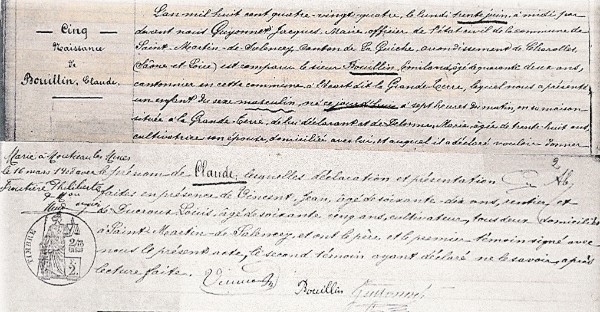 Cinq
Naissance
de
Bouillin, Claude.
L'an mil huit cent quatre-vingt-quatre, le lundi trente juin, à midi par
devant nous Guyonnet Jacques-Marie, officier de l'état civil de la commune de
Saint-Martin-de-Salencey, canton de La Guiche, arrondissement de Charolles
(Saône et Loire), est comparu le sieur Bouillin, Emiland, âgé de quarante deux ans,
cantonnier en cette commune à lieu dit la Grande-Terre, lequel nous a présenté
un enfant du sexe masculin, né ce jourd'hui à sept heures du matin, en sa maison
située à la Grande-Terre, de lui déclarant et de Marie, âgée de trente-huit ans
cultivatrice son épouse, domiciliée avec lui, et auquel il a déclaré vouloir donner
Marié à Montceau les Mines
le 16 mars 1910 avec
Philiberte
le prénom de Claude, lesquelles déclaration et présentation
faites en présence de Vincent Jean, âgé de soixante-dix ans, rentier, et
de Ducroux Louis, âgé de soixante cinq ans, cultivateur, tous deux domiciliés
à Saint-Martin-de-Salencey, et ont le père et le premier témoin signé avec
nous le présent acte, le second témoin ayant déclaré ne le savoir, après
lecture faite.
TIMBRE
Vincent
Bouillin
Guyonnet